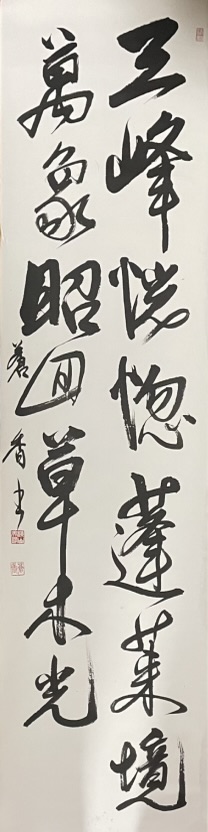 三峰恍惚蓬莱境
萬象昭回草木光
蒼香書